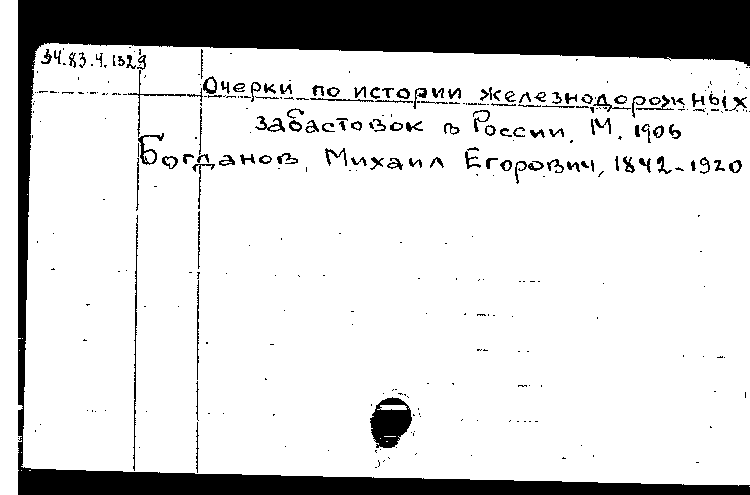 34.83.4.1329
Очерки по истории железнодорожных
забастовок в России. М. 1906
Богданов, Михаил Егорович, 1842-1920